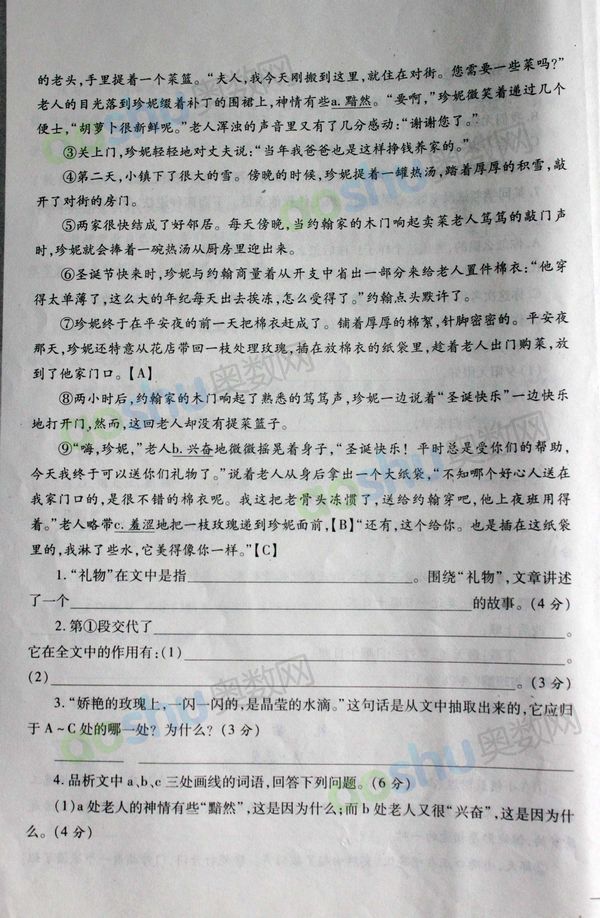 的老头,手里提着一个菜篮。“夫人,我今天刚搬到这里,就住在对街。您需要一些菜吗?”
老人的目光落到珍妮缀着补丁的围裙上,神情有些a.黯然。“要啊,”珍妮微笑着递过几个
便士,“胡萝卜很新鲜呢。”老人浑浊的声音里又有了几分感动:“谢谢您了。”
③关上门,珍妮轻轻地对丈夫说:“当年我爸爸也是这样挣钱养家的。”
④第二天,小镇下了很大的雪。傍晚的时候,珍妮提着一罐热汤,踏着厚厚的积雪,敲
开了对街的房门。
⑤两家很快结成了好邻居。每天傍晚,当约翰家的木门响起卖菜老人笃笃的敲门声
时,珍妮就会捧着一碗热汤从厨房里迎出来。
⑥圣诞节快来时,珍妮与约翰商量着从开支中省出一部分来给老人置件棉衣:“他穿
得太单薄了,这么大的年纪每天出去挨冻,怎么受得了。”约翰点头默许了。
⑦珍妮终于在平安夜的前一天把棉衣赶成了。铺着厚厚的棉絮,针脚密密的。平安夜
那天,珍妮还特意从花店带回一枝处理玫瑰,插在放棉衣的纸袋里,趁着老人出门购菜,放
到了他家门口。【A】
⑧两小时后,约翰家的木门响起了熟悉的笃笃声,珍妮一边说着“圣诞快乐”一边快乐
地打开门,然而,这回老人却没有提菜篮子。
⑨“嗨,珍妮,”老人b.兴奋地微微摇晃着身子,“圣诞快乐!平时总是受你们的帮助,
今天我终于可以送你们礼物了。”说着老人从身后拿出一个大纸袋,“不知哪个好心人送在
我家门口的,是很不错的棉衣呢。我这把老骨头冻惯了,送给约翰穿吧,他上夜班用得
着。”老人略带c.羞涩地把一枝玫瑰递到珍妮面前,【B】“还有,这个给你。也是插在这纸袋
里的,我淋了些水,它美得像你一样。”【C】
1.“礼物”在文中是指。围绕“礼物”,文章讲述
了一个的故事。(4分)
2.第①段交代了。
它在全文中的作用有:(1)
(2)。(3分)
3.“娇艳的玫瑰上,一闪一闪的,是晶莹的水滴。”这句话是从文中抽取出来的,它应归
于A~C处的哪一处?为什么?(3分)
4.品析文中a、b、c三处画线的词语,回答下列问题。(6分)
(1)a处老人的神情有些“黯然”,这是因为什么;而b处老人又很“兴奋”,这是因为什
么。(4分)